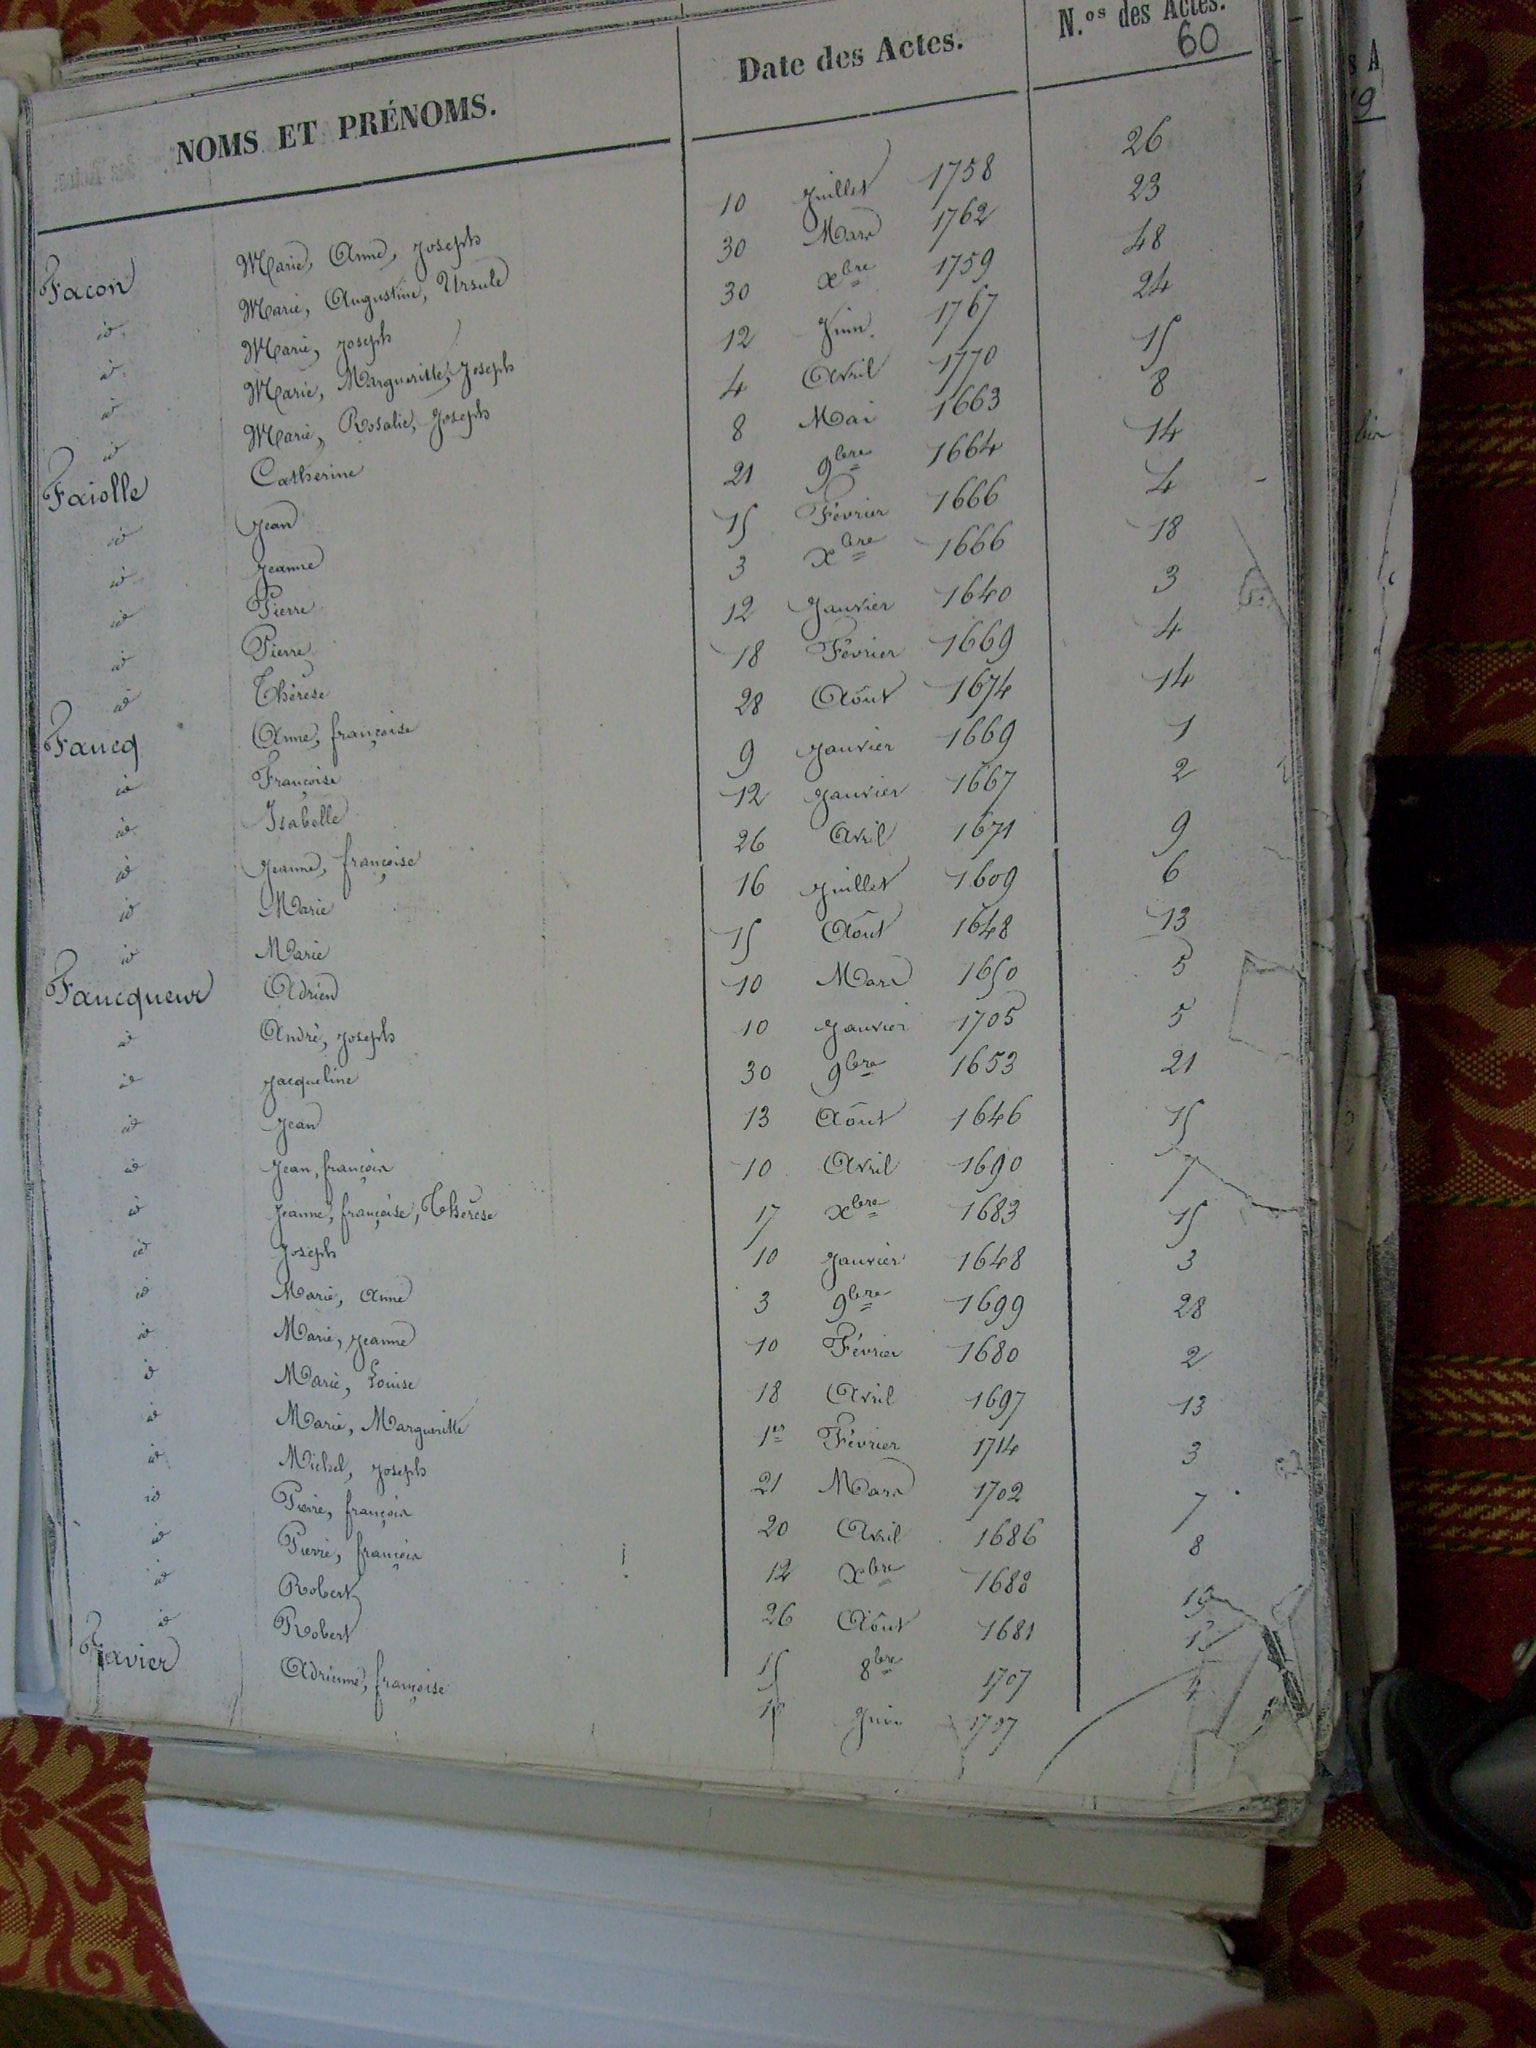 NOMS ET PRÉNOMS. Date des Actes. N.os des Actes.
60
Facon Marie, Anne, Joseph 10 Juillet 1758 26
id Marie, Augustine, Ursule 30 Mars 1762 23
id Marie, Joseph 30 xbre 1759 48
id Marie, Margueritte, Joseph 12 Juin 1767 24
id Marie, Rosalie, Joseph 4 Avril 1770 15
Faiolle Catherine 8 Mai 1663 8
id Jean 21 9bre 1664 14
id Jeanne 15 Février 1666 4
id Pierre 3 xbre 1666 18
id Pierre 12 Janvier 1640 3
id Thérèse 18 Février 1669 4
Faucq Anne, françoise 28 Août 1674 14
id Françoise 9 Janvier 1669 1
id Isabelle 12 Janvier 1667 2
id Jeanne, françoise 26 Avril 1671 9
id Marie 16 Juillet 1609 6
id Marie 15 Août 1648 13
Faucqueur Adrien 10 Mars 1650 5
id André, Joseph 10 Janvier 1705 5
id Jacqueline 30 9bre 1653 21
id Jean 13 Août 1646 15
id Jean, françois 10 Avril 1690 7
id Jeanne, françoise, Thérèse 17 xbre 1683 15
id Joseph 10 Janvier 1648 3
id Marie, Anne 3 9bre 1699 28
id Marie, Jeanne 10 Février 1680 2
id Marie, Louise 18 Avril 1697 13
id Marie, Margueritte 1er Février 1714 3
id Michel, Joseph 21 Mars 1702 7
id Pierre, françois 20 Avril 1686 8
id Pierre, françois 12 xbre 1688
id Robert 26 Août 1681
id Robert 15 8bre 1707
Favier Adrienne, françoise Juin 1707